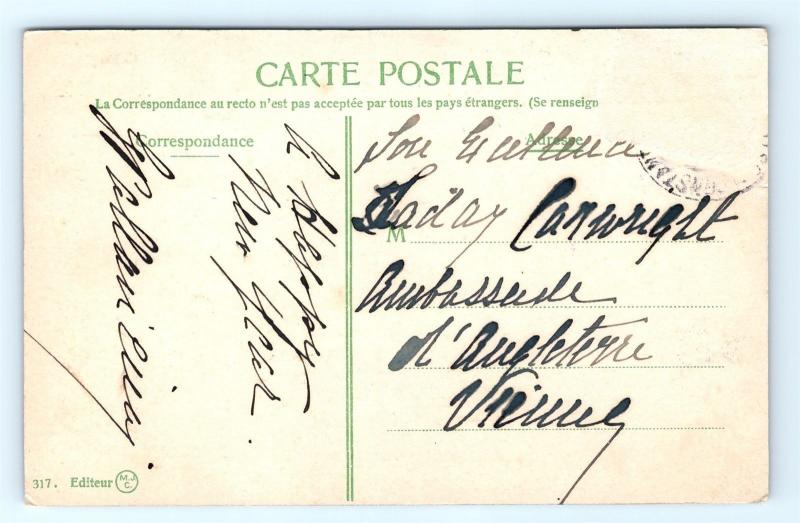 CARTE POSTALE
La Correspondance au recto n'est pas acceptée par tous les pays étrangers. (Se renseign
Correspondance
Adresse
a Happy
New Year.
Son Excellence
M Lady Cartwright
Ambassade
d'Angleterre
Vienne
317. Editeur M.J.C.